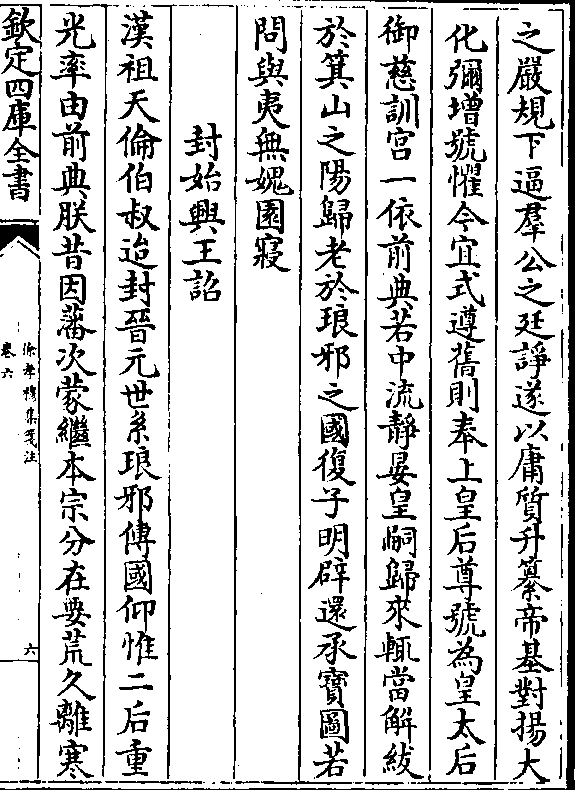 之嚴規下逼羣公之廷諍遂以庸質升纂帝基對揚大
化彌增號懼今宜式遵舊則奉上皇后尊號為皇太后
御慈訓宮一依前典若中流靜晏皇嗣歸來輒當解紱
於箕山之陽歸老於琅邪之國復子明辟還承寶圖若
問與夷無媿園寢
封始興王詔
漢祖天倫伯叔迨封晉元世系琅邪傳國仰惟二后重
光率由前典朕昔因藩次蒙繼本宗分在要荒久離寒
欽定四庫全書
徐孝穆集箋注
卷六
六